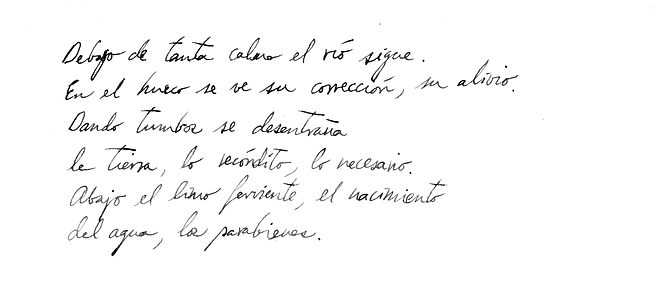 Debajo de tanta calma el río sigue.
En el hueco se ve su corrección, su alivio.
Dando tumbos se desentraña
la tierra, lo recóndito, lo necesario.
Abajo el limo ferviente, el nacimiento
del agua, los parabienes.